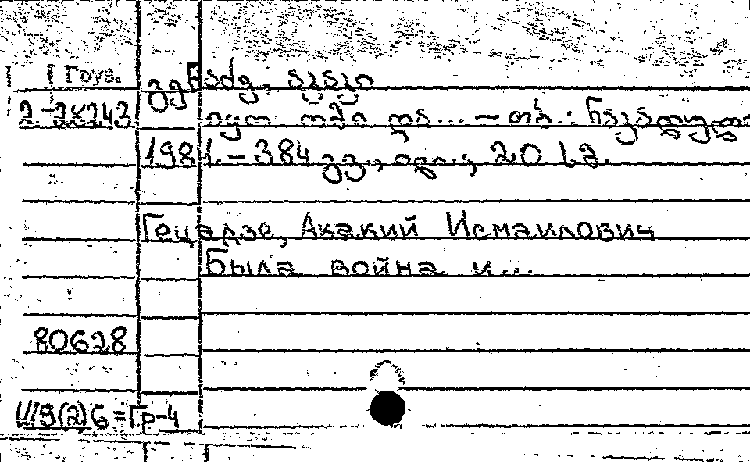 Груз.
გეწაძე, აკაკი
2-28243
იყო ომი და... – თბ.: ნაკადული
1981. – 384 გვ., ილ., 20 სმ.
Гецадзе, Акакий Исмаилович
Была война и...
80628
Ш9(2)6=Гр-4